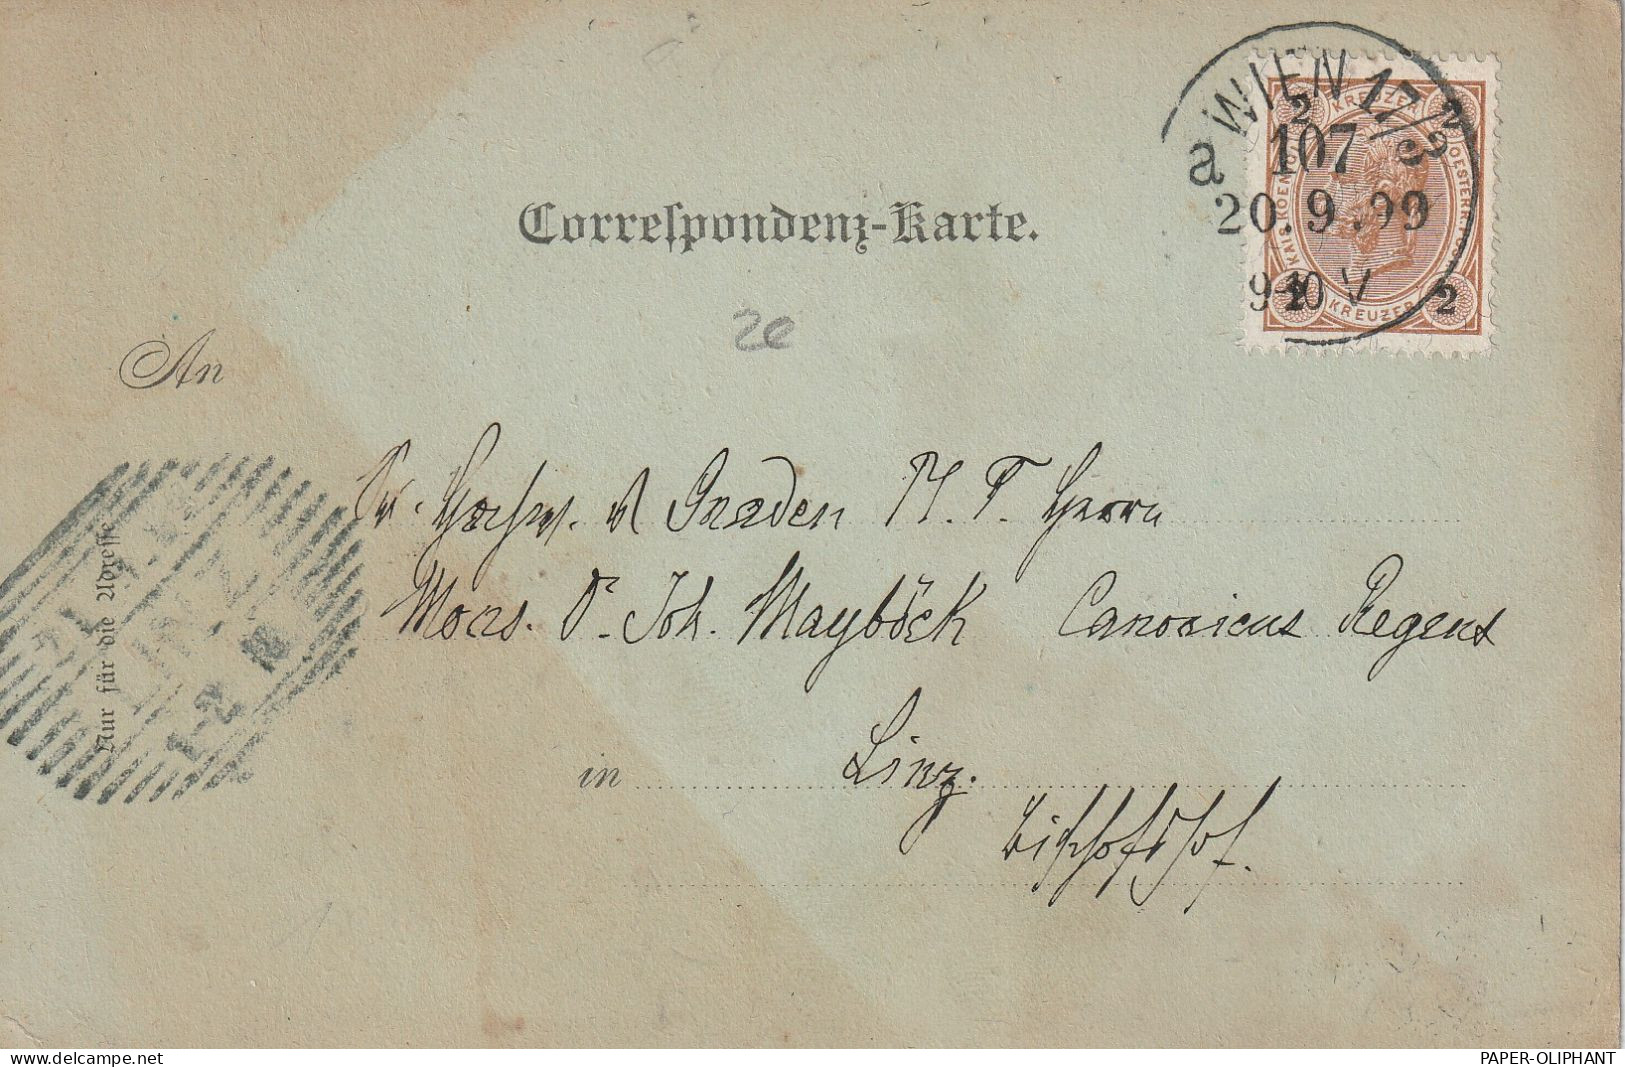 Correspondenz-Karte.
a WIEN 17/3
107
20.9.99
9-10 V
2 KREUZER 2
2 KREUZER 2
2e
An
Sr. Hochw. u Gnaden P. T. Herrn
Mons. D. Joh. Mayböck Canonicus Regens
in Linz.
Bischofshof.
Nur für die Adresse
LINZ
PAPER-OLIPHANT
delcampe.net